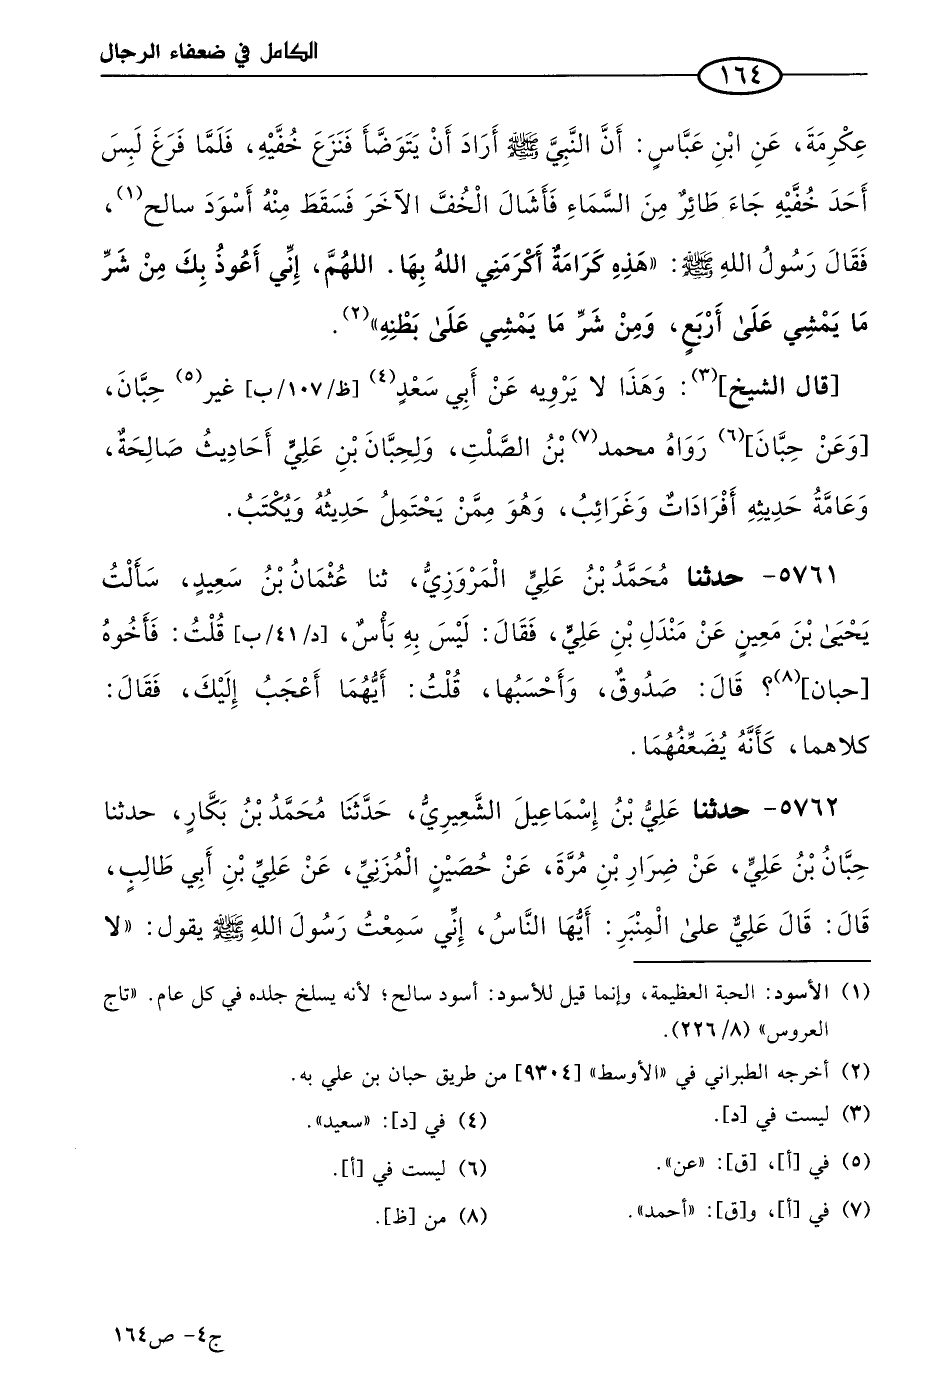 الكامل في ضعفاء الرجال
١٦٤
عِكْرِمَةَ، عَنِ ابْنِ عَبَّاسٍ: أَنَّ النَّبِيَّ ﷺ أَرَادَ أَنْ يَتَوَضَّأَ فَنَزَعَ خُفَّيْهِ، فَلَمَّا فَرَغَ لَبِسَ
أَحَدَ خُفَّيْهِ جَاءَ طَائِرٌ مِنَ السَّمَاءِ فَأَشَالَ الْخُفَّ الآخَرَ فَسَقَطَ مِنْهُ أَسْوَدَ سالح(١)،
فَقَالَ رَسُولُ اللهِ ﷺ: «هَذِهِ كَرَامَةٌ أَكْرَمَنِي اللهُ بِهَا. اللهُمَّ، إِنِّي أَعُوذُ بِكَ مِنْ شَرِّ
مَا يَمْشِي عَلَىٰ أَرْبَعٍ، وَمِنْ شَرِّ مَا يَمْشِي عَلَىٰ بَطْنِهِ»(٢).
[قال الشيخ](٣): وَهَذَا لا يَرْوِيه عَنْ أَبِي سَعْدٍ(٤) [ظ/١٠٧/ب] غير(٥) حِبَّانَ،
[وَعَنْ حِبَّانَ](٦) رَوَاهُ محمد(٧) بْنُ الصَّلْتِ، وَلِحِبَّانَ بْنِ عَلِيٍّ أَحَادِيثُ صَالِحَةٌ،
وَعَامَّةُ حَدِيثِهِ أَفْرَادَاتٌ وَغَرَائِبُ، وَهُوَ مِمَّنْ يَحْتَمِلُ حَدِيثُهُ وَيُكْتَبُ.
٥٧٦١- حدثنا مُحَمَّدُ بْنُ عَلِيٍّ الْمَرْوَزِيُّ، ثنا عُثْمَانُ بْنُ سَعِيدٍ، سَأَلْتُ
يَحْيَىٰ بْنَ مَعِينٍ عَنْ مَنْدَلِ بْنِ عَلِيٍّ، فَقَالَ: لَيْسَ بِهِ بَأْسٌ، [د/٤١/ب] قُلْتُ: فَأَخُوهُ
[حبان](٨)؟ قَالَ: صَدُوقٌ، وَأَحْسَبُها، قُلْتُ: أَيُّهُمَا أَعْجَبُ إِلَيْكَ، فَقَالَ:
كلاهما، كَأَنَّهُ يُضَعِّفُهُمَا.
٥٧٦٢- حدثنا عَلِيُّ بْنُ إِسْمَاعِيلَ الشَّعِيرِيُّ، حَدَّثَنَا مُحَمَّدُ بْنُ بَكَّارٍ، حدثنا
حِبَّانُ بْنُ عَلِيٍّ، عَنْ ضِرَارِ بْنِ مُرَّةَ، عَنْ حُصَيْنٍ الْمُزَنِيِّ، عَنْ عَلِيِّ بْنِ أَبِي طَالِبٍ،
قَالَ: قَالَ عَلِيٌّ علىٰ الْمِنْبَرِ: أَيُّهَا النَّاسُ، إِنِّي سَمِعْتُ رَسُولَ اللهِ ﷺ يقول: «لا
(١) الأسود: الحية العظيمة، وإنما قيل للأسود: أسود سالح؛ لأنه يسلخ جلده في كل عام. «تاج
العروس» (٨/ ٢٢٦).
(٢) أخرجه الطبراني في «الأوسط» [٩٣٠٤] من طريق حبان بن علي به.
(٣) ليست في [د]. (٤) في [د]: «سعيد».
(٥) في [أ]، [ق]: «عن». (٦) ليست في [أ].
(٧) في [أ]، و[ق]: «أحمد». (٨) من [ظ].
ج٤- ص١٦٤